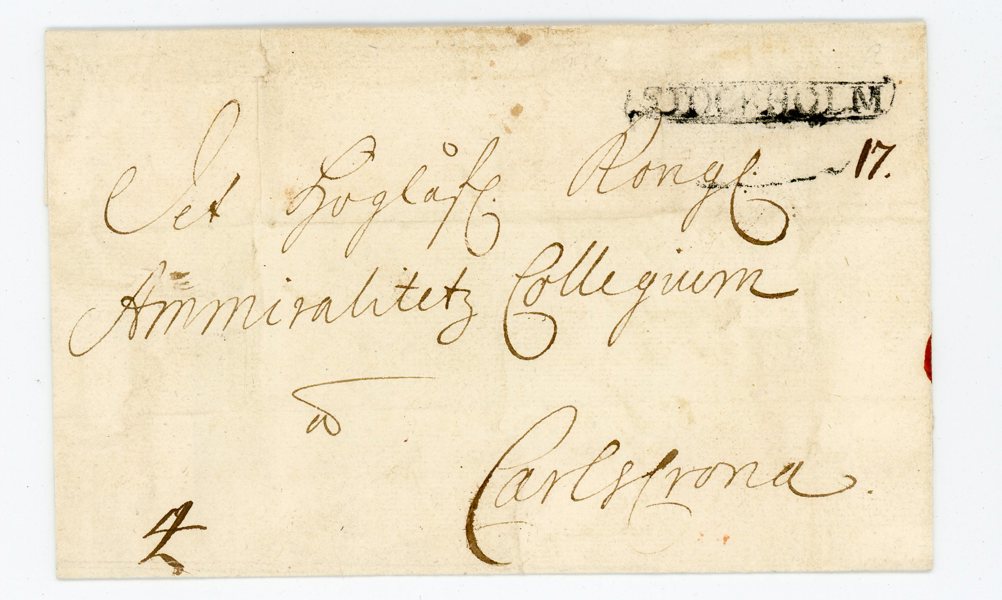 STOCKHOLM
17.
Det Höglåfl. Kongl.
Ammiralitetz Collegium
a
Carlscrona.